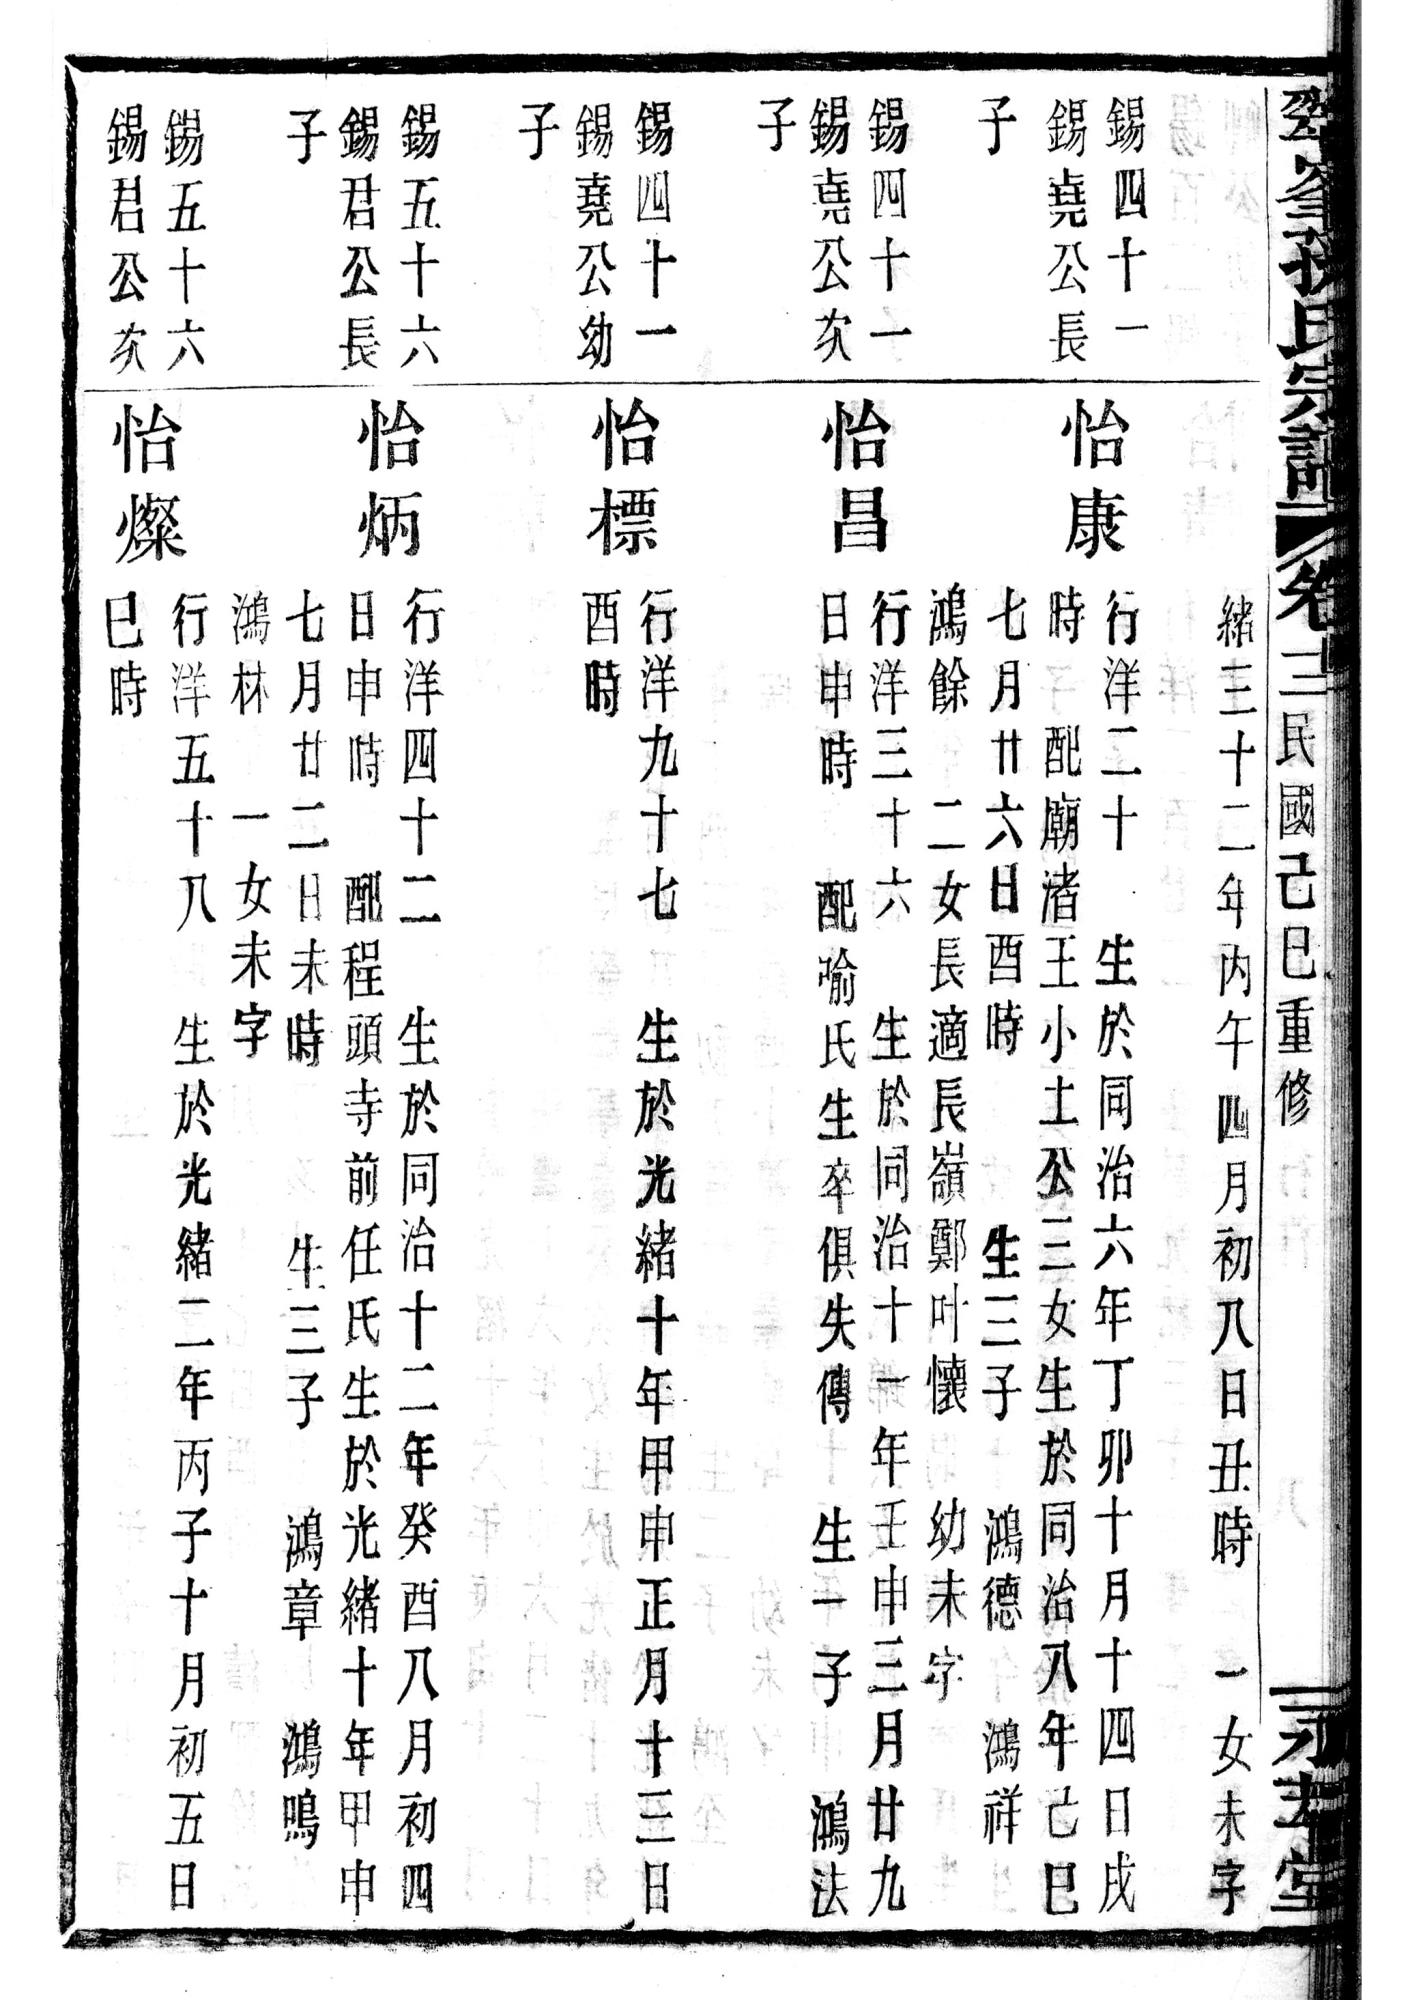 氏宗譜 卷三 民國己巳重修 永孝堂
緒三十二年丙午四月初八日丑時 一女未字
錫四十一
錫堯公長
子
怡康
行洋二十 生於同治六年丁卯十月十四日戌
時 配廟渚王小土公三女生於同治八年己巳
七月廿六日酉時 生三子 鴻德 鴻祥
鴻餘 二女長適長嶺鄭叶懷 幼未字
錫四十一
錫堯公次
子
怡昌
行洋三十六 生於同治十一年壬申三月廿九
日申時 配喻氏生卒俱失傳 生一子 鴻法
錫四十一
錫堯公幼
子
怡標
行洋九十七 生於光緒十年甲申正月十三日
酉時
錫五十六
錫君公長
子
怡炳
行洋四十二 生於同治十二年癸酉八月初四
日申時 配程頭寺前任氏生於光緒十年甲申
七月廿二日未時 生三子 鴻章 鴻鳴
鴻林 一女未字
錫五十六
錫君公次
怡燦
行洋五十八 生於光緒二年丙子十月初五日
巳時